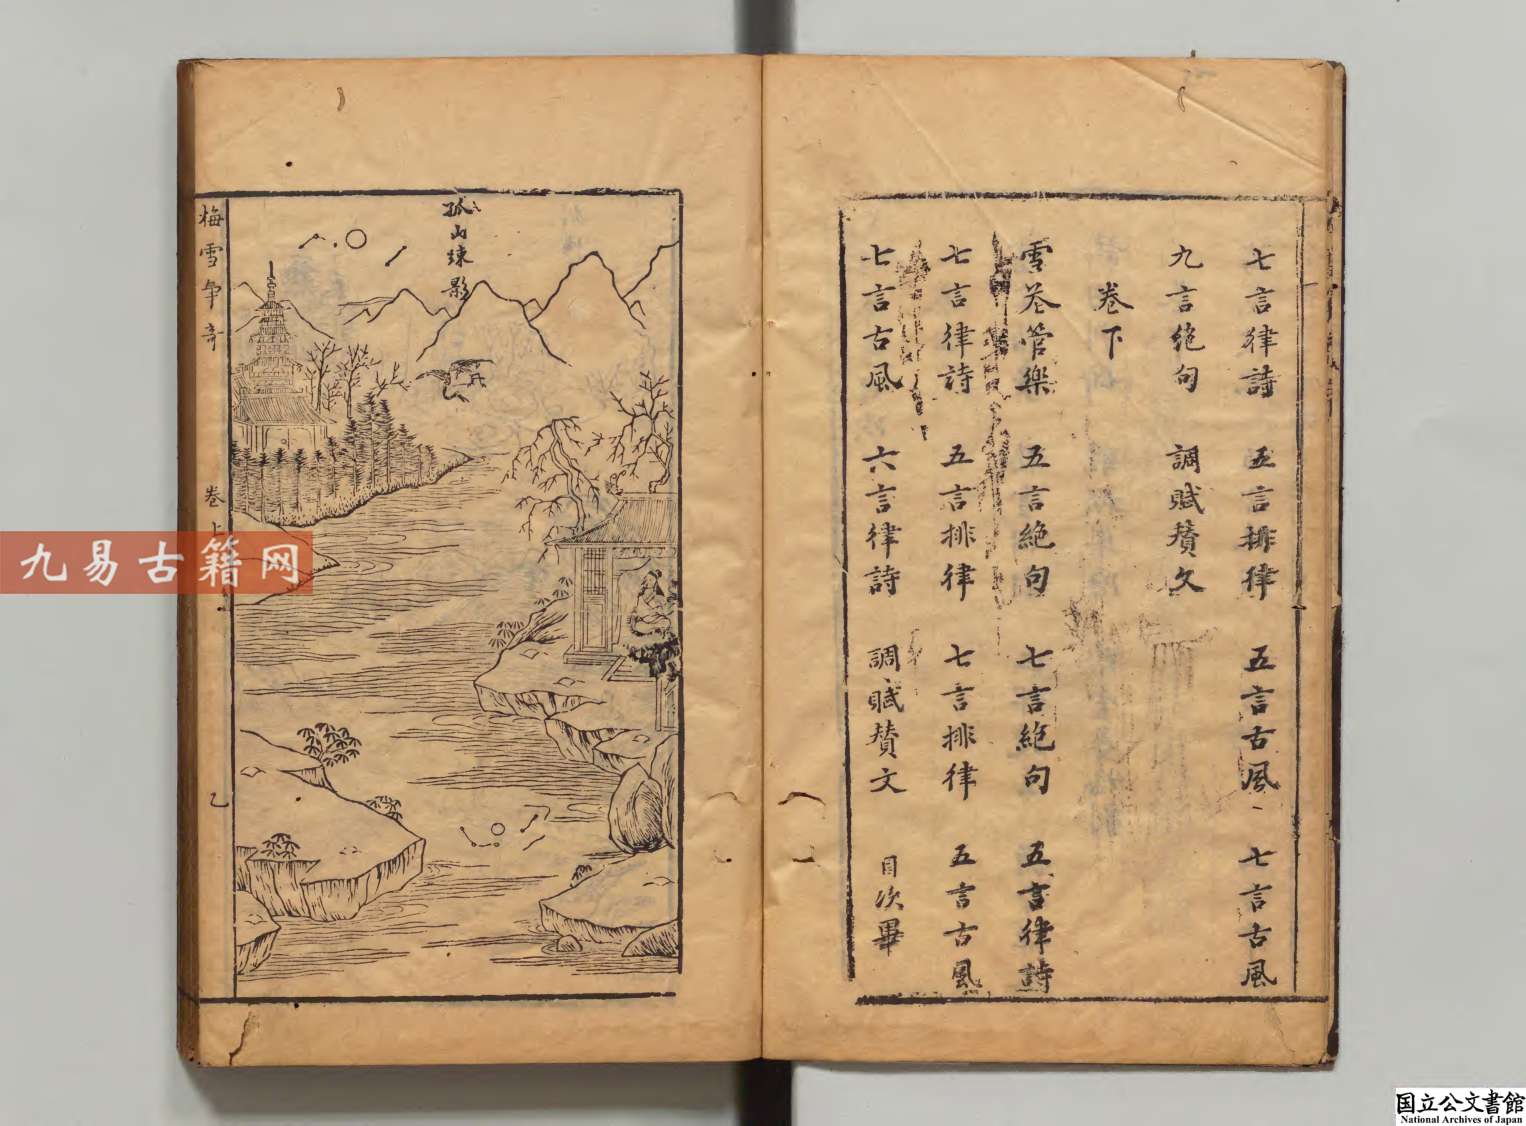 七言律詩 五言排律 五言古風 七言古風
九言絶句 調賦賛文
卷下
雪花管樂 五言絶句 七言絶句 五言律詩
七言律詩 五言排律 七言排律 五言古風
七言古風 六言律詩 調賦賛文 目次畢
孤山疎影
梅雪争奇 卷上 乙
九易古籍网
国立公文書館
National Archives of Japan